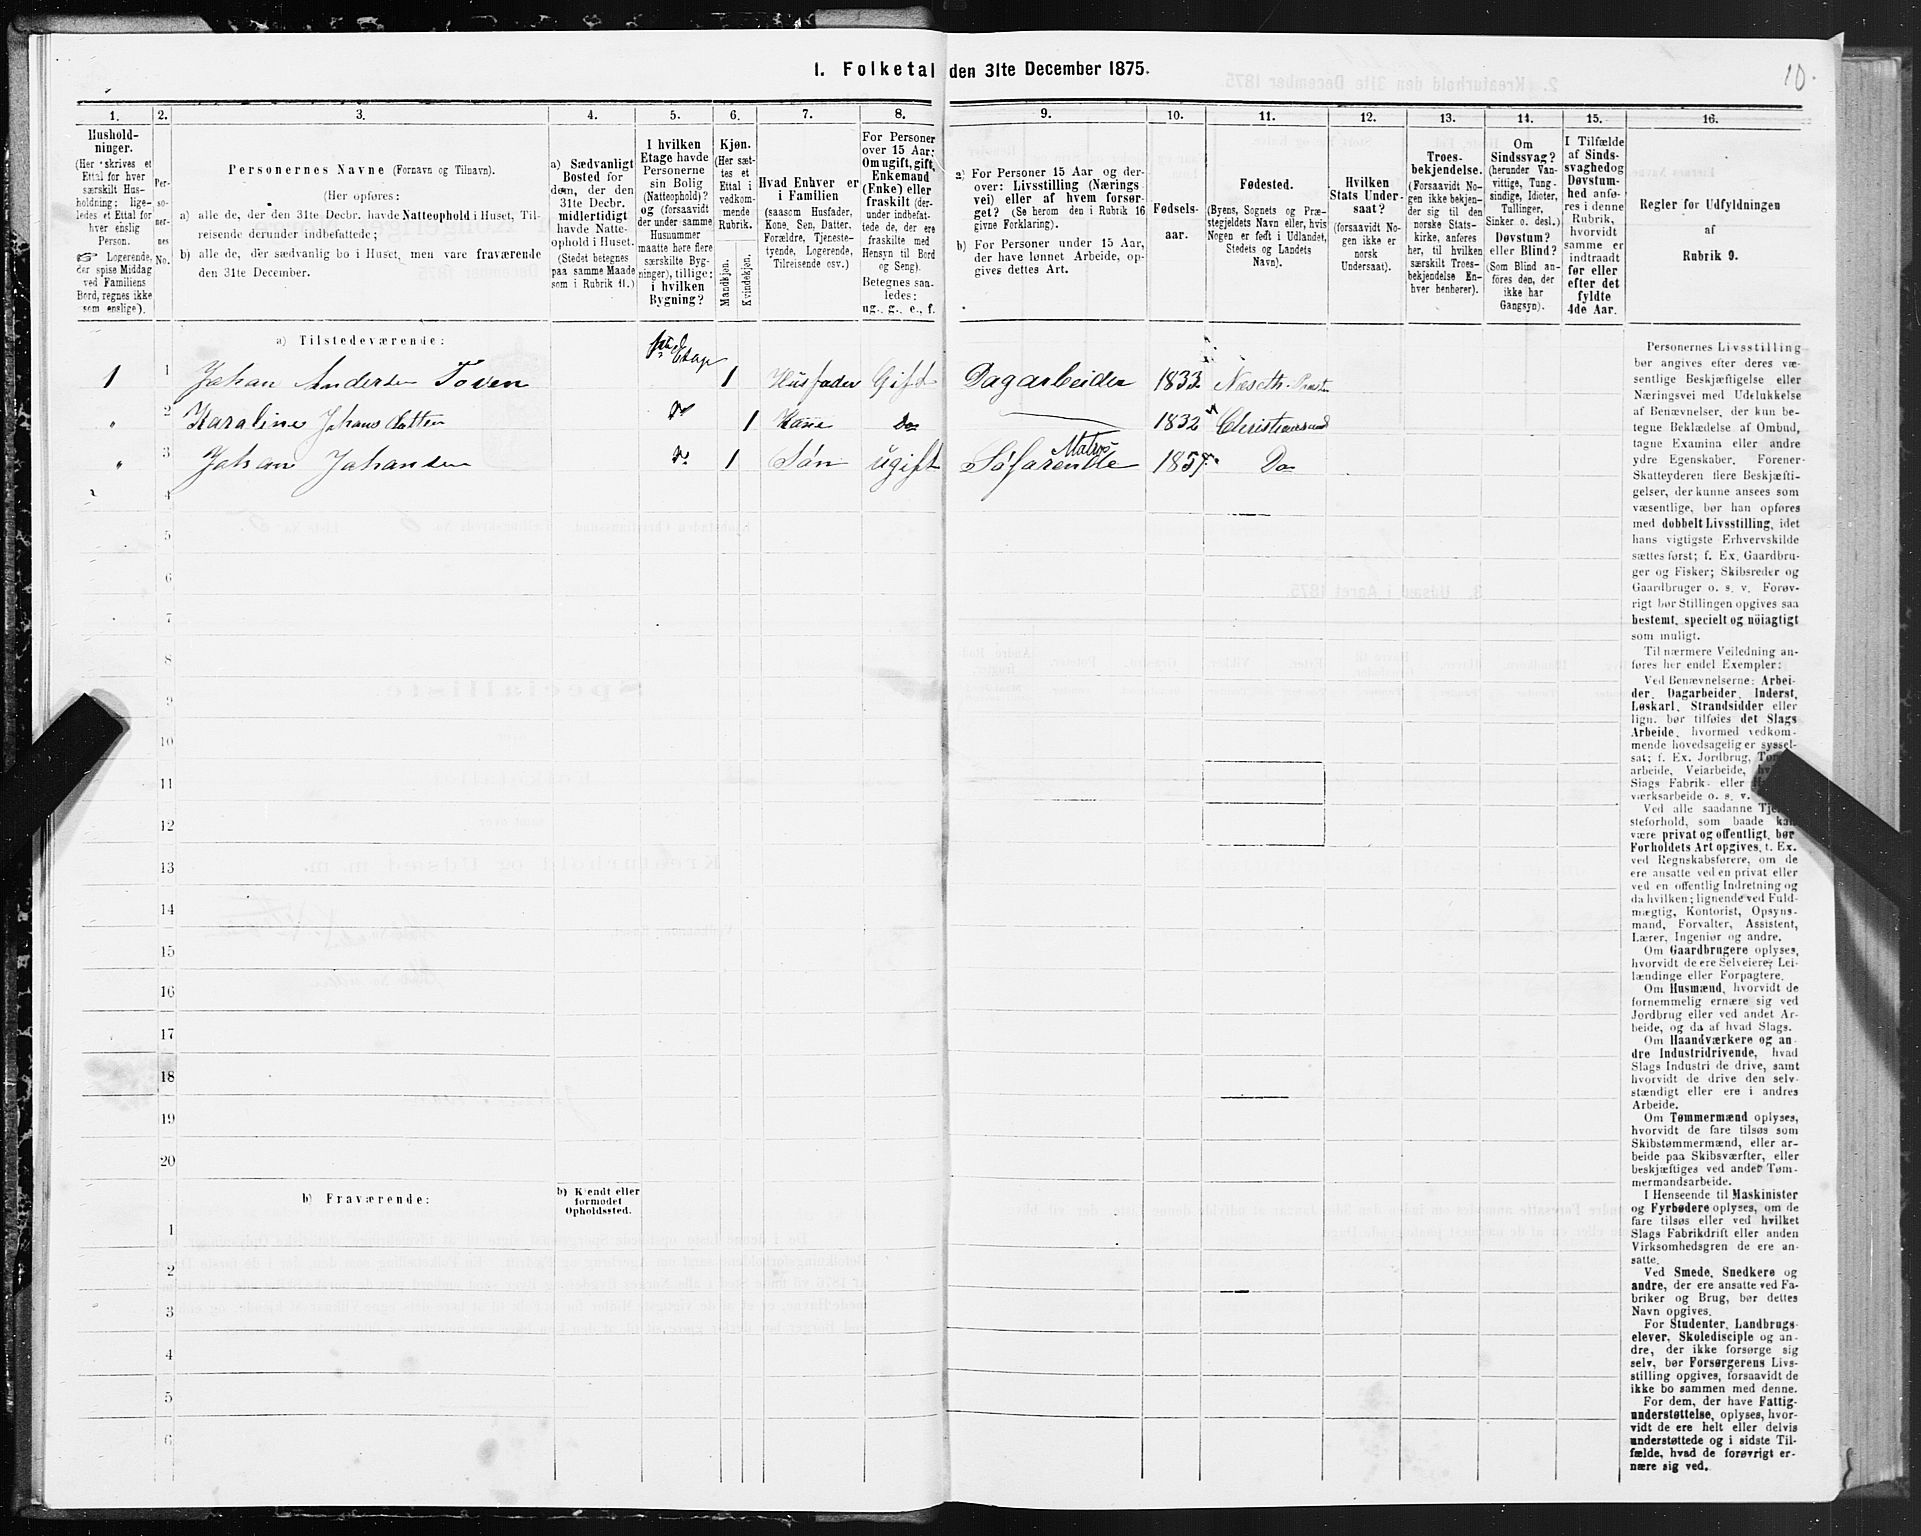 1. Folketal den 31te December 1875.
10.
1. 2. 3. 4. 5. 6. 7. 8. 9. 10. 11. 12. 13. 14. 15. 16.
Hushold-
ninger.
(Her skrives et
Ettal for hver
særskilt Hus-
holdning; lige-
ledes et Ettal for
hver enslig
Person.
Logerende,
der spise Middag
ved Familiens
Bord, regnes ikke
som enslige).
Per-
so-
ner-
nes
No.
Personernes Navne (Fornavn og Tilnavn).
(Her opføres:
a) alle de, der den 31te Decbr. havde Natteophold i Huset, Til-
reisende derunder indbefattede;
b) alle de, der sædvanlig bo i Huset, men vare fraværende
den 31te December.
a) Sædvanligt
Bosted for
dem, der den
31te Decbr.
midlertidigt
havde Natte-
ophold i Huset.
(Stedet betegnes
paa samme Maade
som i Rubrik 11.)
I hvilken
Etage havde
Personerne
sin Bolig
(Natteophold)?
og (forsaavidt
der under samme
Husnummer
maatte høre flere
særskilte Byg-
ninger), tillige:
i hvilken
Bygning?
Kjøn.
(Her sæt-
tes et
Ettal i
vedkom-
mende
Rubrik.
Mandkjøn.
Kvindekjøn.
Hvad Enhver er
i Familien
(saasom Husfader,
Kone, Søn, Datter,
Forældre, Tjeneste-
tyende, Logerende,
Tilreisende osv.)
For Personer
over 15 Aar:
Om ugift, gift,
Enkemand
(Enke) eller
fraskilt (der-
under indbefat-
tede de, der ere
fraskilte med
Hensyn til Bord
og Seng).
Betegnes saa-
ledes:
ug., g., e., f.
a) For Personer 15 Aar og der-
over: Livsstilling (Nærings
vei) eller af hvem forsør-
get? (Se herom den i Rubrik 16
givne Forklaring).
b) For Personer under 15 Aar,
der have lønnet Arbeide, op-
gives dettes Art.
Fødsels-
aar.
Fødested.
(Byens, Sognets og Præ-
stegjeldets Navn eller, hvis
Nogen er født i Udlandet,
Stedets og Landets
Navn).
Hvilken
Stats Under-
saat?
(forsaavidt No-
gen ikke er
norsk
Undersaat).
Troes-
bekjendelse.
(Forsaavidt No-
gen ikke bekjen-
der sig til den
norske Stats-
kirke, anføres
her, til hvilken
særskilt Troes-
bekjendelse En-
hver henhører).
Om
Sindssvag?
(herunder Van-
vittige, Tung-
sindige, Idioter,
Tullinger,
Sinker o. desl.)
Døvstum?
eller Blind?
(Som Blind an-
føres den, der
ikke har
Gangsyn).
I Tilfælde
af Sinds-
svaghed og
Døvstum-
hed anfø-
res i denne
Rubrik,
hvorvidt
samme er
indtraadt
før eller
efter det
fyldte
4de Aar.
Regler for Udfyldningen
af
Rubrik 9.
a) Tilstedeværende:
1 1 Johan Andersen Toven Etage 1 Husfader Gift Dagarbeider 1833 Næseth Præst
" 2 Karaline Johans Datter Do 1 Kone Do 1832 Christiansund
" 3 Johan Johansen Do 1 Søn ugift Søfarende Matros 1857 Do
4
5
6
7
8
9
10
11
12
13
14
15
16
17
18
19
20
b) Fraværende:
b) Kjendt eller
formodet
Opholdssted.
1
2
3
4
5
6
Personernes Livsstilling
bør angives efter deres væ-
sentlige Beskjæftigelse eller
Næringsvei med Udelukkelse
af Benævnelser, der kun be-
tegne Beklædelse af Ombud,
tagne Examina eller andre
ydre Egenskaber. Forener
Skatteyderen flere Beskjæfti-
gelser, der kunne ansees som
væsentlige, bør han opføres
med dobbelt Livsstilling, idet
hans vigtigste Erhvervskilde
sættes først; f. Ex. Gaardbru-
ger og Fisker; Skibsreder og
Gaardbruger o. s. v. Forøv-
rigt bør Stillingen opgives saa
bestemt, specielt og nøiagtigt
som muligt.
Til nærmere Veiledning an-
føres her endel Exempler:
Ved Benævnelserne: Arbei-
der, Dagarbeider, Inderst,
Løskarl, Strandsidder eller
lign. bør tilføies det Slags
Arbeide, hvormed vedkom-
mende hovedsagelig er syssel-
sat; f. Ex. Jordbrug,
arbeide, Veiarbeide,
Slags Fabrik- eller
værksarbeide o. s. v.
Ved alle saadanne
steforhold, som baade kan
være privat og offentligt, bør
Forholdets Art opgives, f. Ex.
ved Regnskabsførere, om de
ere ansatte ved en privat eller
ved en offentlig Indretning og
da hvilken; lignende ved Fuld-
mægtig, Kontorist, Opsyns-
mand, Forvalter, Assistent,
Lærer, Ingeniør og andre.
Om Gaardbrugere oplyses,
hvorvidt de ere Selveiere, Lei-
lændinge eller Forpagtere.
Om Husmænd, hvorvidt de
fornemmelig ernære sig ved
Jordbrug eller ved andet Ar-
beide, og da af hvad Slags.
Om Haandværkere og an-
dre Industridrivende, hvad
Slags Industri de drive, samt
hvorvidt de drive den selv-
stændigt eller ere i andres
Arbeide.
Om Tømmermænd oplyses,
hvorvidt de fare tilsøs som
Skibstømmermænd, eller ar-
beide paa Skibsværfter, eller
beskjæftiges ved andet Tøm-
mermandsarbeide.
I Henseende til Maskinister
og Fyrbødere oplyses, om de
fare tilsøs eller ved hvilket
Slags Fabrikdrift eller anden
Virksomhedsgren de ere an-
satte.
Ved Smede, Snedkere og
andre, der ere ansatte ved Fa-
briker og Brug, bør dettes
Navn opgives.
For Studenter, Landbrugs-
elever, Skoledisciple og an-
dre, der ikke forsørge sig
selv, bør Forsørgerens Livs-
stilling opgives, forsaavidt de
ikke bo sammen med denne.
For dem, der have Fattig-
understøttelse, oplyses, hvor-
vidt de ere helt eller delvis
understøttede og i sidste Til-
fælde, hvad de forøvrigt er-
nære sig ved.